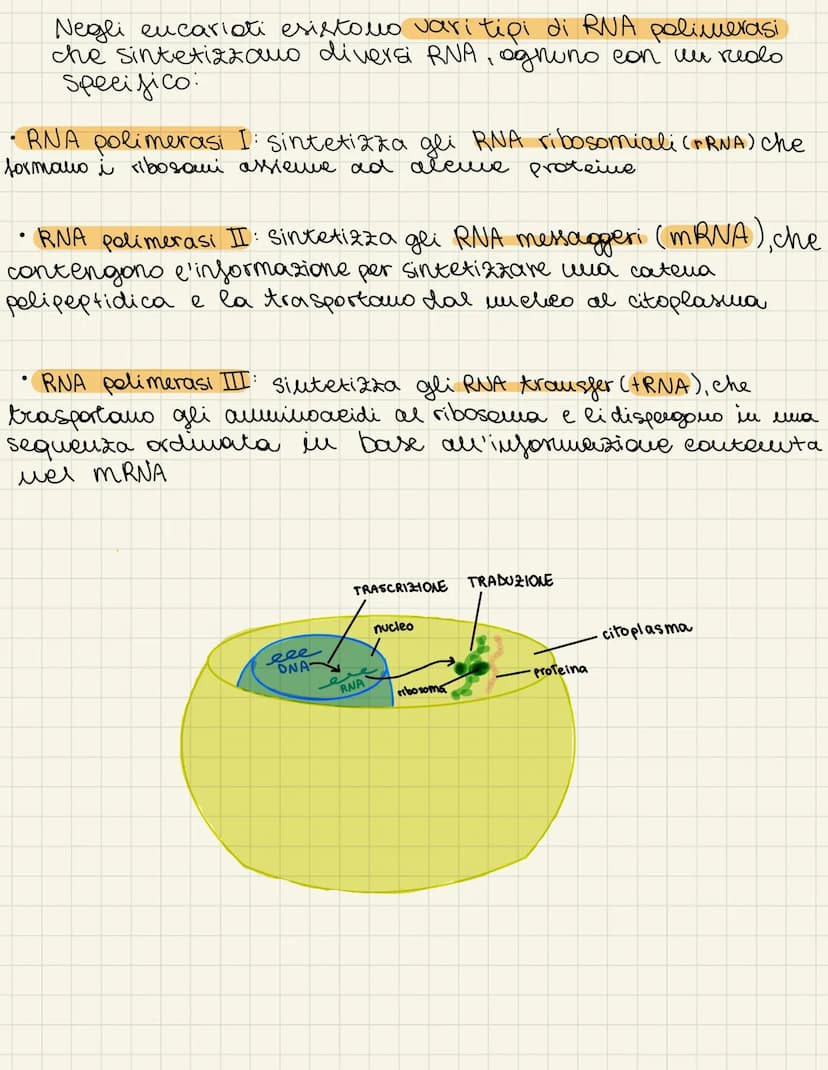 Negli eucarioti esistono vari tipi di RNA polimerasi
che sintetizzano diversi RNA, ognuno con un ruolo
specifico:
• RNA polimerasi I: sintetizza gli RNA ribosomiali (rRNA) che
formano i ribosomi assieme ad alcune proteine
• RNA polimerasi II: sintetizza gli RNA messaggeri (mRNA), che
contengono l'informazione per sintetizzare una catena
polipeptidica e la trasportano dal nucleo al citoplasma
• RNA polimerasi III: sintetizza gli RNA transfer (tRNA), che
trasportano gli amminoacidi al ribosoma e li dispongono in una
sequenza ordinata in base all'informazione contenuta
nel mRNA
TRASCRIZIONE TRADUZIONE
nucleo
citoplasma
DNA
RNA
ribosoma
proteina